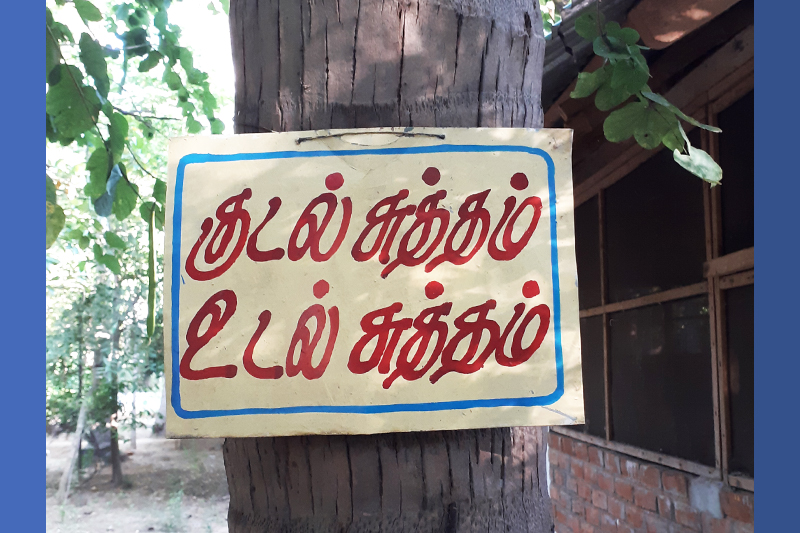 குடல் சுத்தம்
உடல் சுத்தம்